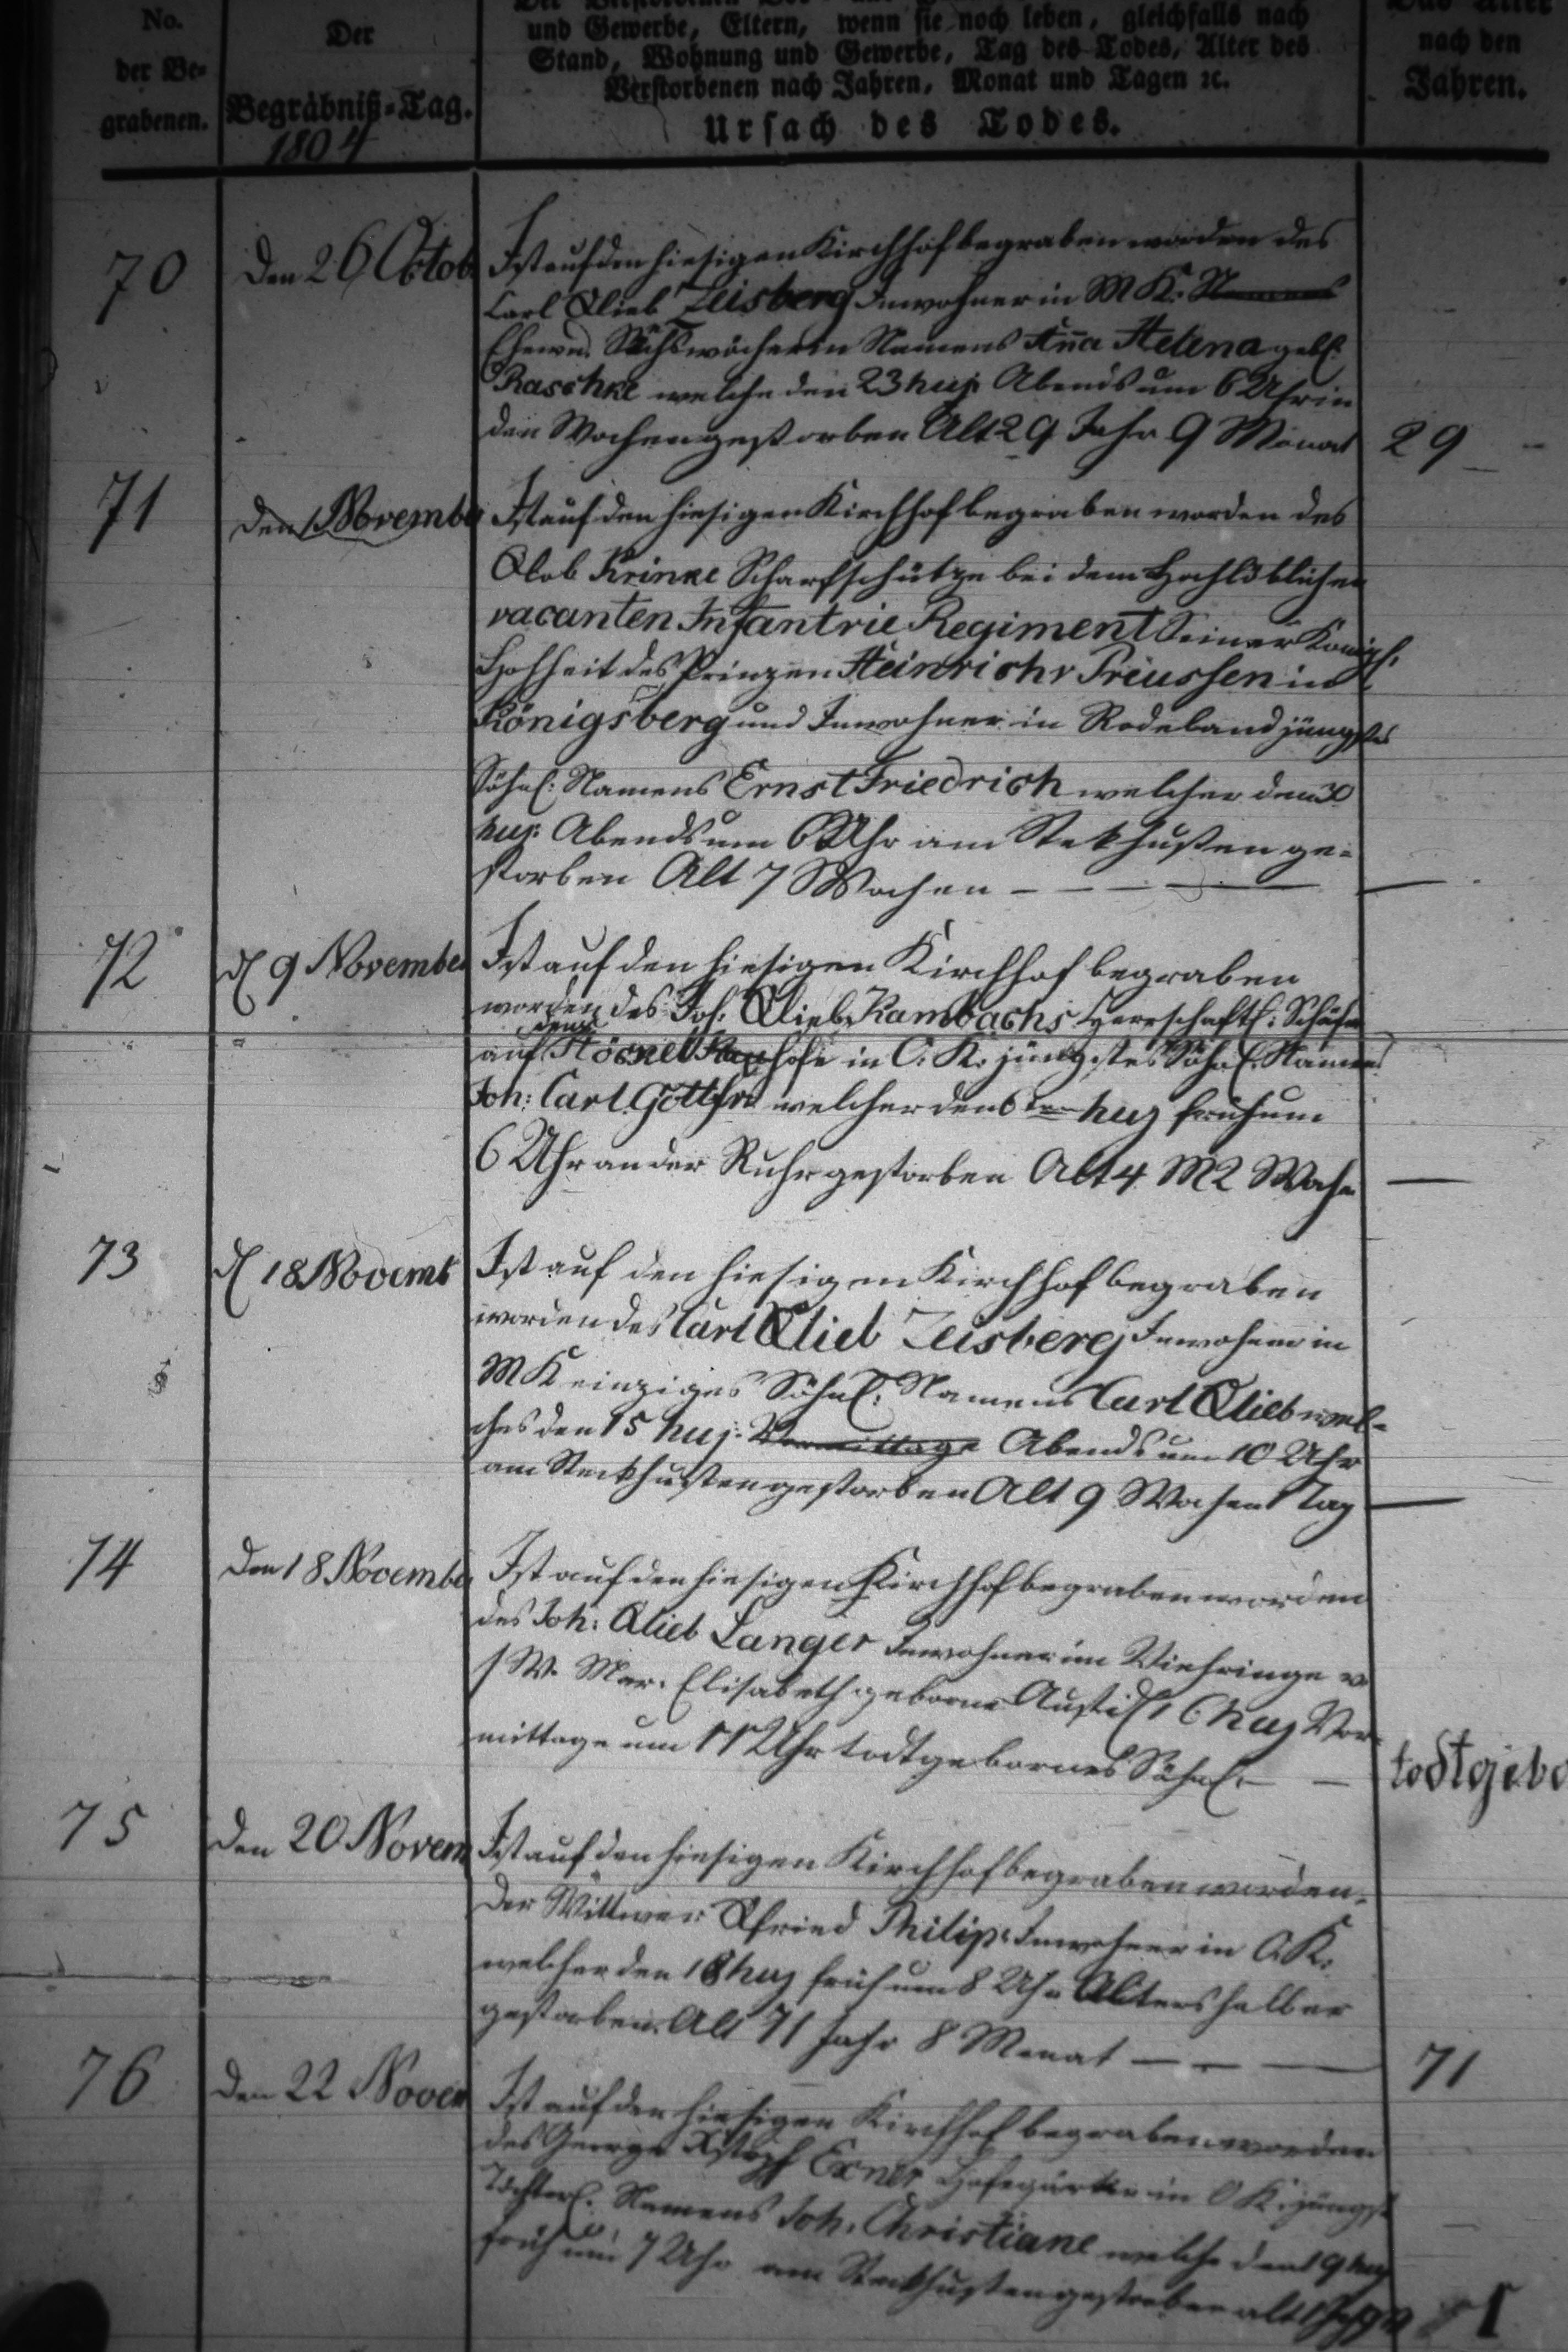 No.
der Be-
grabenen.
Der
Begräbniß-Tag.
1804
und Gewerbe, Eltern, wenn sie noch leben, gleichfalls nach
Stand, Wohnung und Gewerbe, Tag des Todes, Alter des
Verstorbenen nach Jahren, Monat und Tagen ꝛc.
Ursach des Todes.
Das Alter
nach den
Jahren.
70
Den 26 Octob
Ist auf den hiesigen Kirchhof begraben worden des
Carl Glieb Zeisberg Inwohner in M K. Namens
Ehew. Sechswöcherin Namens Anna Helena geb.
Raschke welche den 23 huj. Abends um 6 Uhr in
den Wochen gestorben Alt 29 Jahr 9 Monat
29
71
Den 1 Novembe
Ist auf den hiesigen Kirchhof begraben worden des
Glob Krinke Scharfschütze bei dem Hochlöblichen
vacanten Infantrie Regiment Seiner Königl.
Hohheit des Prinzen Heinrich v Preussen in
Königsberg und Inwohner in Rodeland jüngstes
Söhnl: Namens Ernst Friedrich welcher den 30
huj. Abends um 6 Uhr am Stekhusten ge-
storben Alt 7 Wochen
72
d 9 November
Ist auf den hiesigen Kirchhof begraben
worden des Joh. Glieb Kambachs Herrschaftl: Schäfer
auf dem hofe in O. K. jüngstes Söhnl. Namens
Joh: Carl Gottfr. welcher den 6 ten huj früh um
6 Uhr an der Ruhr gestorben Alt 4 M 2 Woche
73
d 18 Novemb
Ist auf den hiesigen Kirchhof begraben
worden des Carl Glieb Zeisberg Inwohner in
M K einziges Söhnl: Namens Carl Glieb wel-
ches den 15 huj. Vormittage Abends um 10 Uhr
am Steckhusten gestorben Alt 9 Wochen 1 Tag
74
Den 18 November
Ist auf den hiesigen Kirchhof begraben worden
des Joh: Glieb Langer Inwohner im Viehringe v
s W. Mar. Elisabeth geborne Aust d 16 huj Vor-
mittage um 11 Uhr todtgebornes Söhnl.
todtgebo
75
Den 20 Novem
Ist auf den hiesigen Kirchhof begraben worden.
Der Wittwer Gfried Philip Inwohner in O. K.
welcher den 18 huj früh um 8 Uhr Alters halber
gestorben. Alt 71 Jahr 8 Monat
71
76
Den 22 Novem
Ist auf den hiesigen Kirchhof begraben worden
des George Xstoph Exner Hofegärtn in O K. jüngst
Töchterl. Namens Joh. Christiane welche den 19 huj
früh um 7 Uhr am Steckhusten gestorben alt